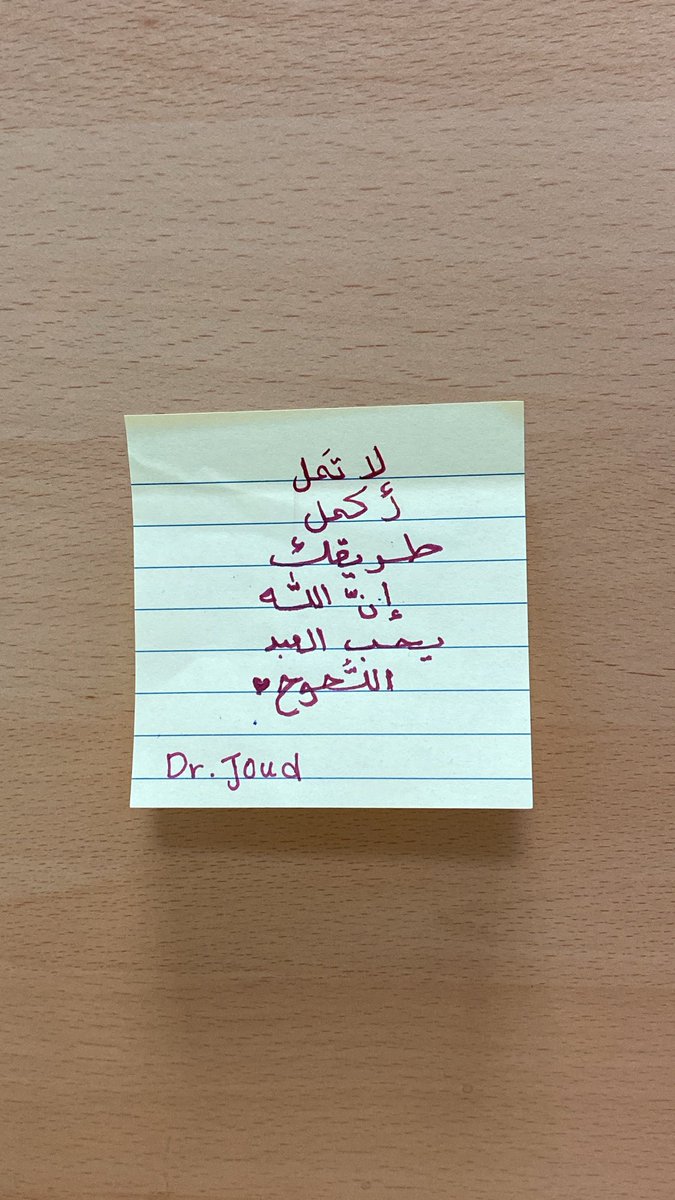 لا تمَل
أكمل
طريقك
إنَّ اللّه
يحب العبد
اللَّحوح ♥
Dr. Joud